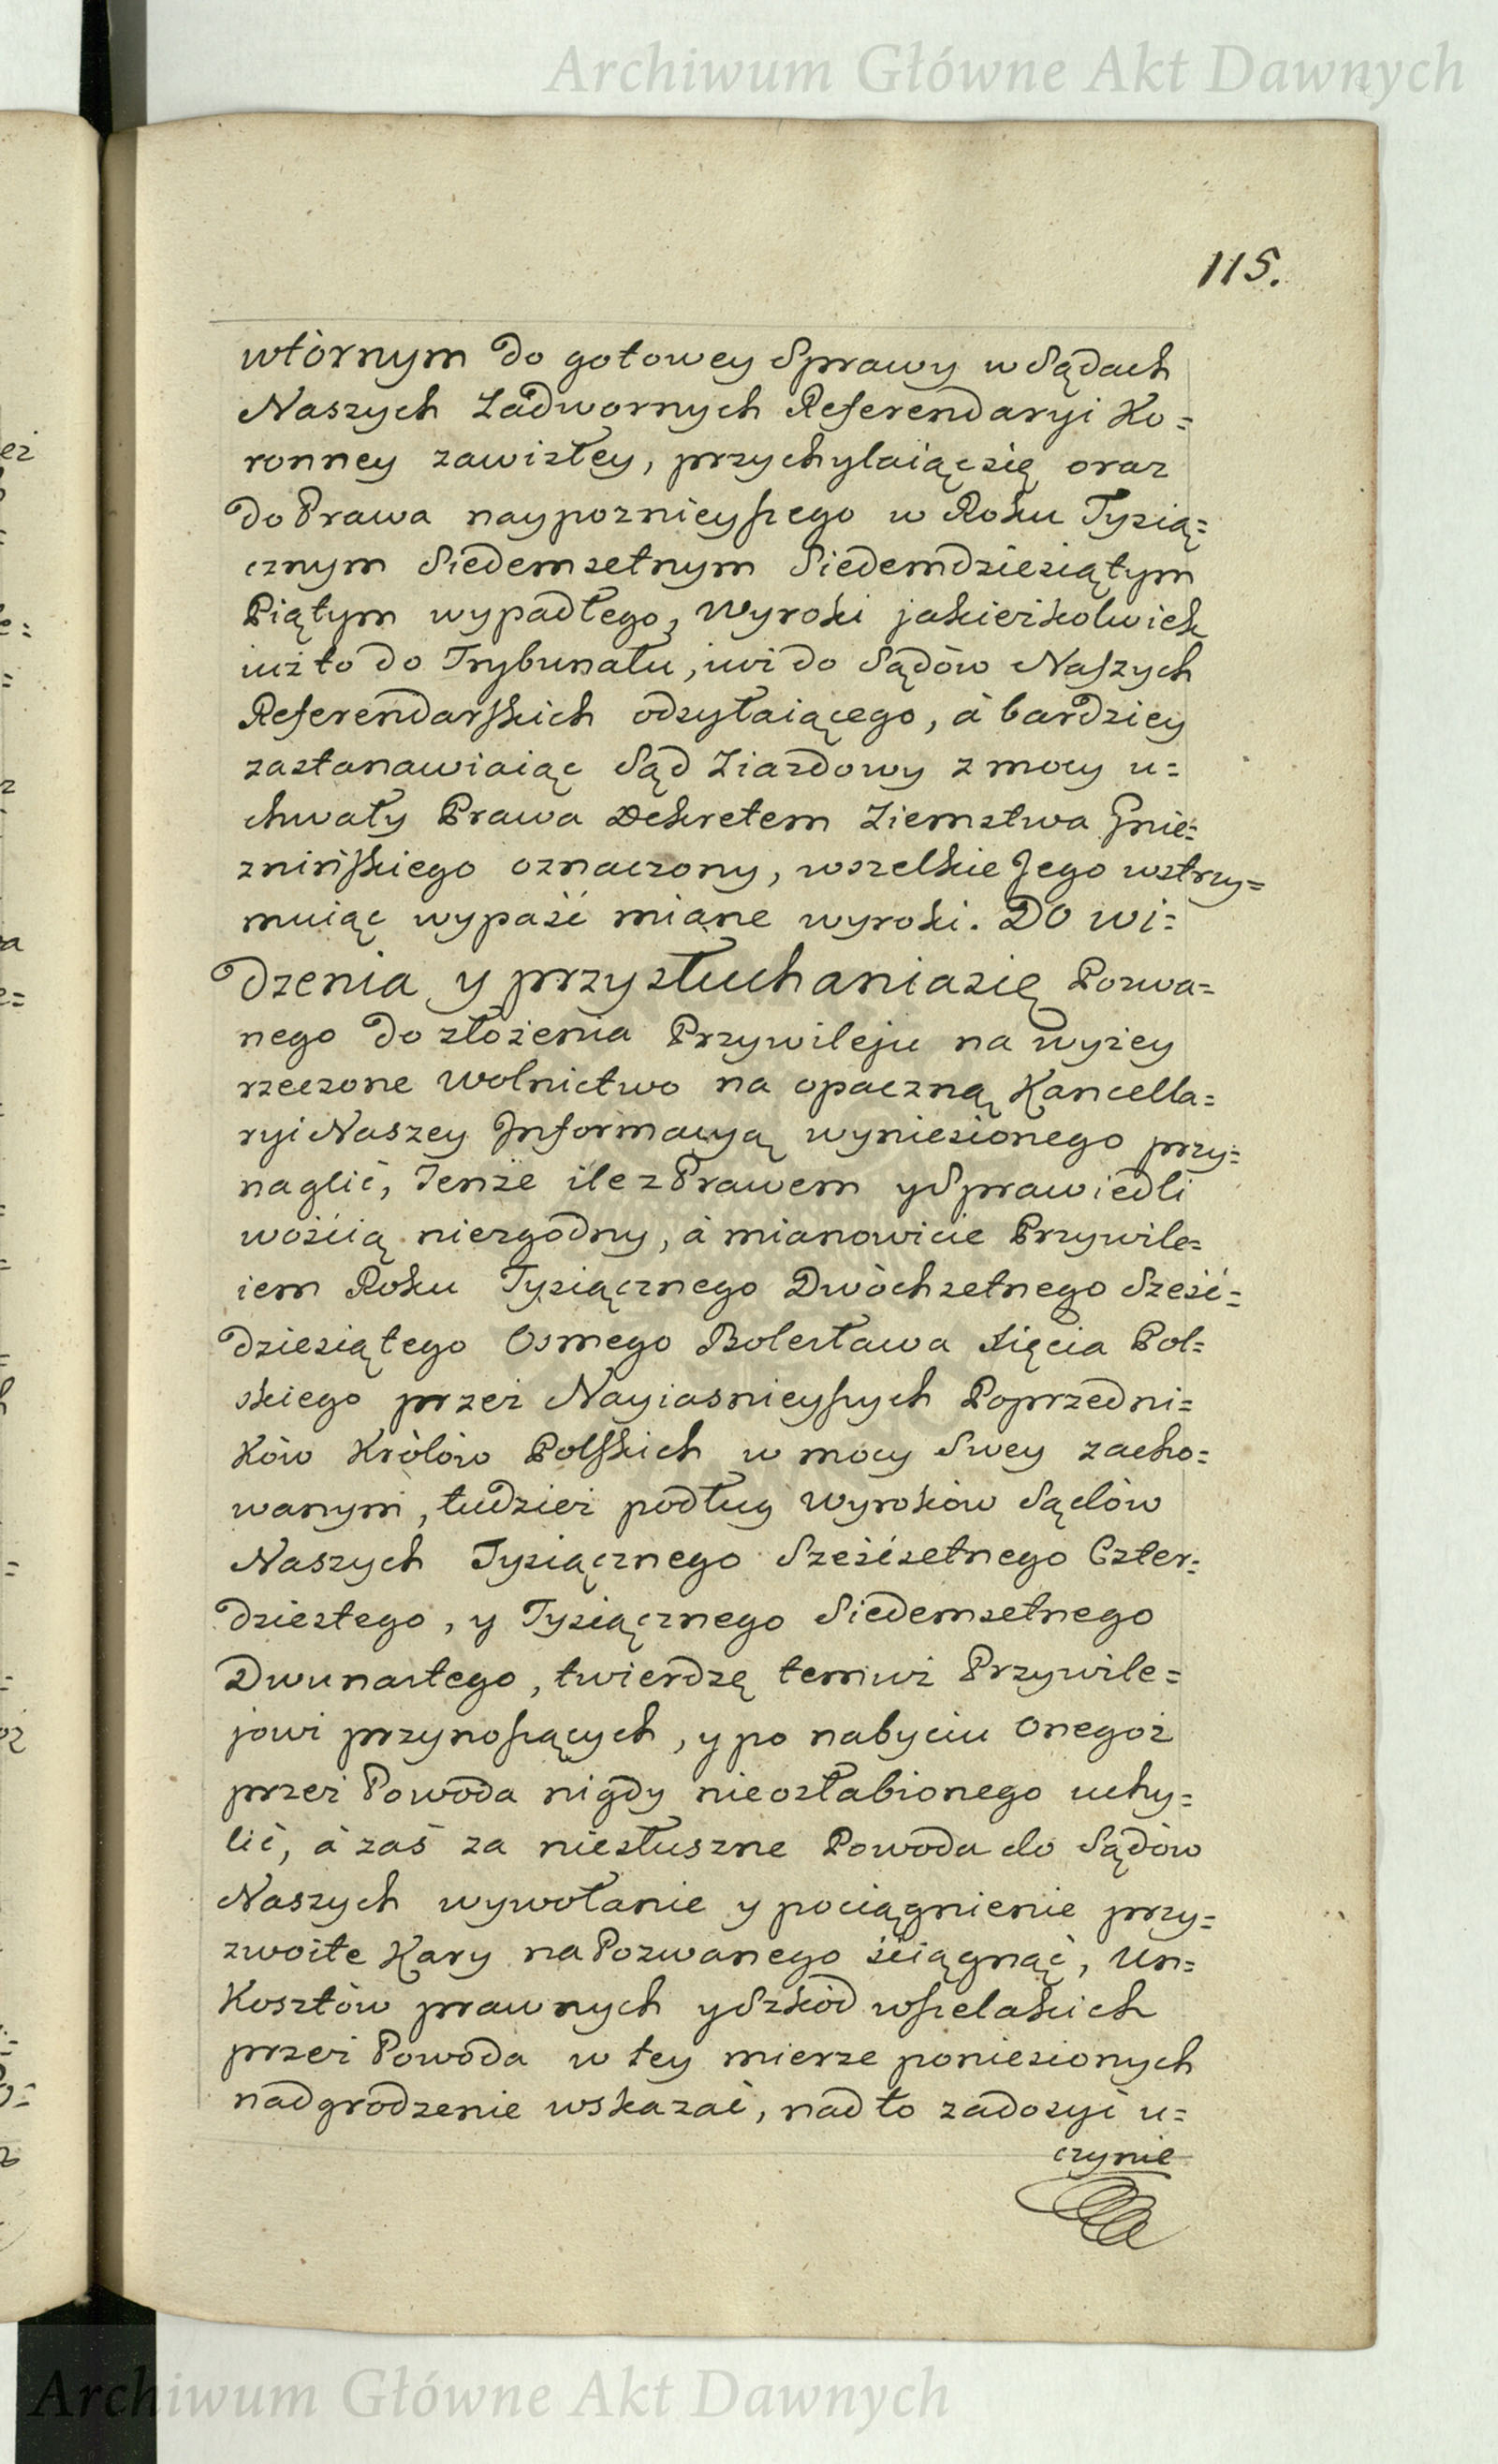 Archiwum Główne Akt Dawnych
115.
wtórnym do gotowey Sprawy w Sądach
Naszych Zadwornych Referendaryi Ko=
ronney zawisłey, przychylaiąc się oraz
do Prawa naypoznieyszego w Roku Tysią=
cznym Siedemsetnym Siedemdziesiątym
Piątym wypadłego, Wyroki jakieżkolwiek
iuż to do Trybunału, iuż do Sądów Naszych
Referendarskich odsyłaiącego, á bardziey
zastanawiaiąc Sąd Ziazdowy z mocy u=
chwały Prawa Dekretem Ziemstwa Gnie=
znińskiego oznaczony, wszelkie Jego wstrzy=
muiąc wypaść miane wyroki. DO wi=
dzenia y przysłuchania się Pozwa=
nego do złożenia Przywileju na wyżey
rzeczone Wolnictwo na opaczną Kancella=
ryi Naszey Informacyą wyniesionego przy=
naglić, Tenże ile z Prawem y Sprawiedli
wością niezgodny, á mianowicie Przywile=
iem Roku Tysiącznego Dwóchsetnego Sześć=
dziesiątego Osmego Bolesława Xięcia Pol=
skiego przez Nayiasnieyszych Poprzedni=
ków Królów Polskich w mocy Swey zacho=
wanym, tudzież podług Wyroków Sądów
Naszych Tysiącznego Sześćsetnego Czter=
dziestego, y Tysiącznego Siedemsetnego
Dwunastego, twierdzę temuż Przywile=
jowi przynoszących, y po nabyciu Onegoż
przez Powoda nigdy nieosłabionego uchy=
lić, á zaś za niesłuszne Powoda do Sądów
Naszych wywołanie y pociągnienie przy=
zwoite Kary na Pozwanego ściągnąć, Un=
Kosztów prawnych y Szkód wszelakich
przez Powoda w tey mierze poniesionych
nadgrodzenie wskazać, nad to zadosyć u=
czynie
Archiwum Główne Akt Dawnych